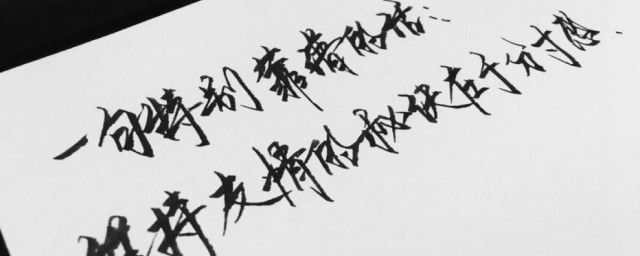 一句特别靠谱的话：
维持友情的秘诀在于分寸感